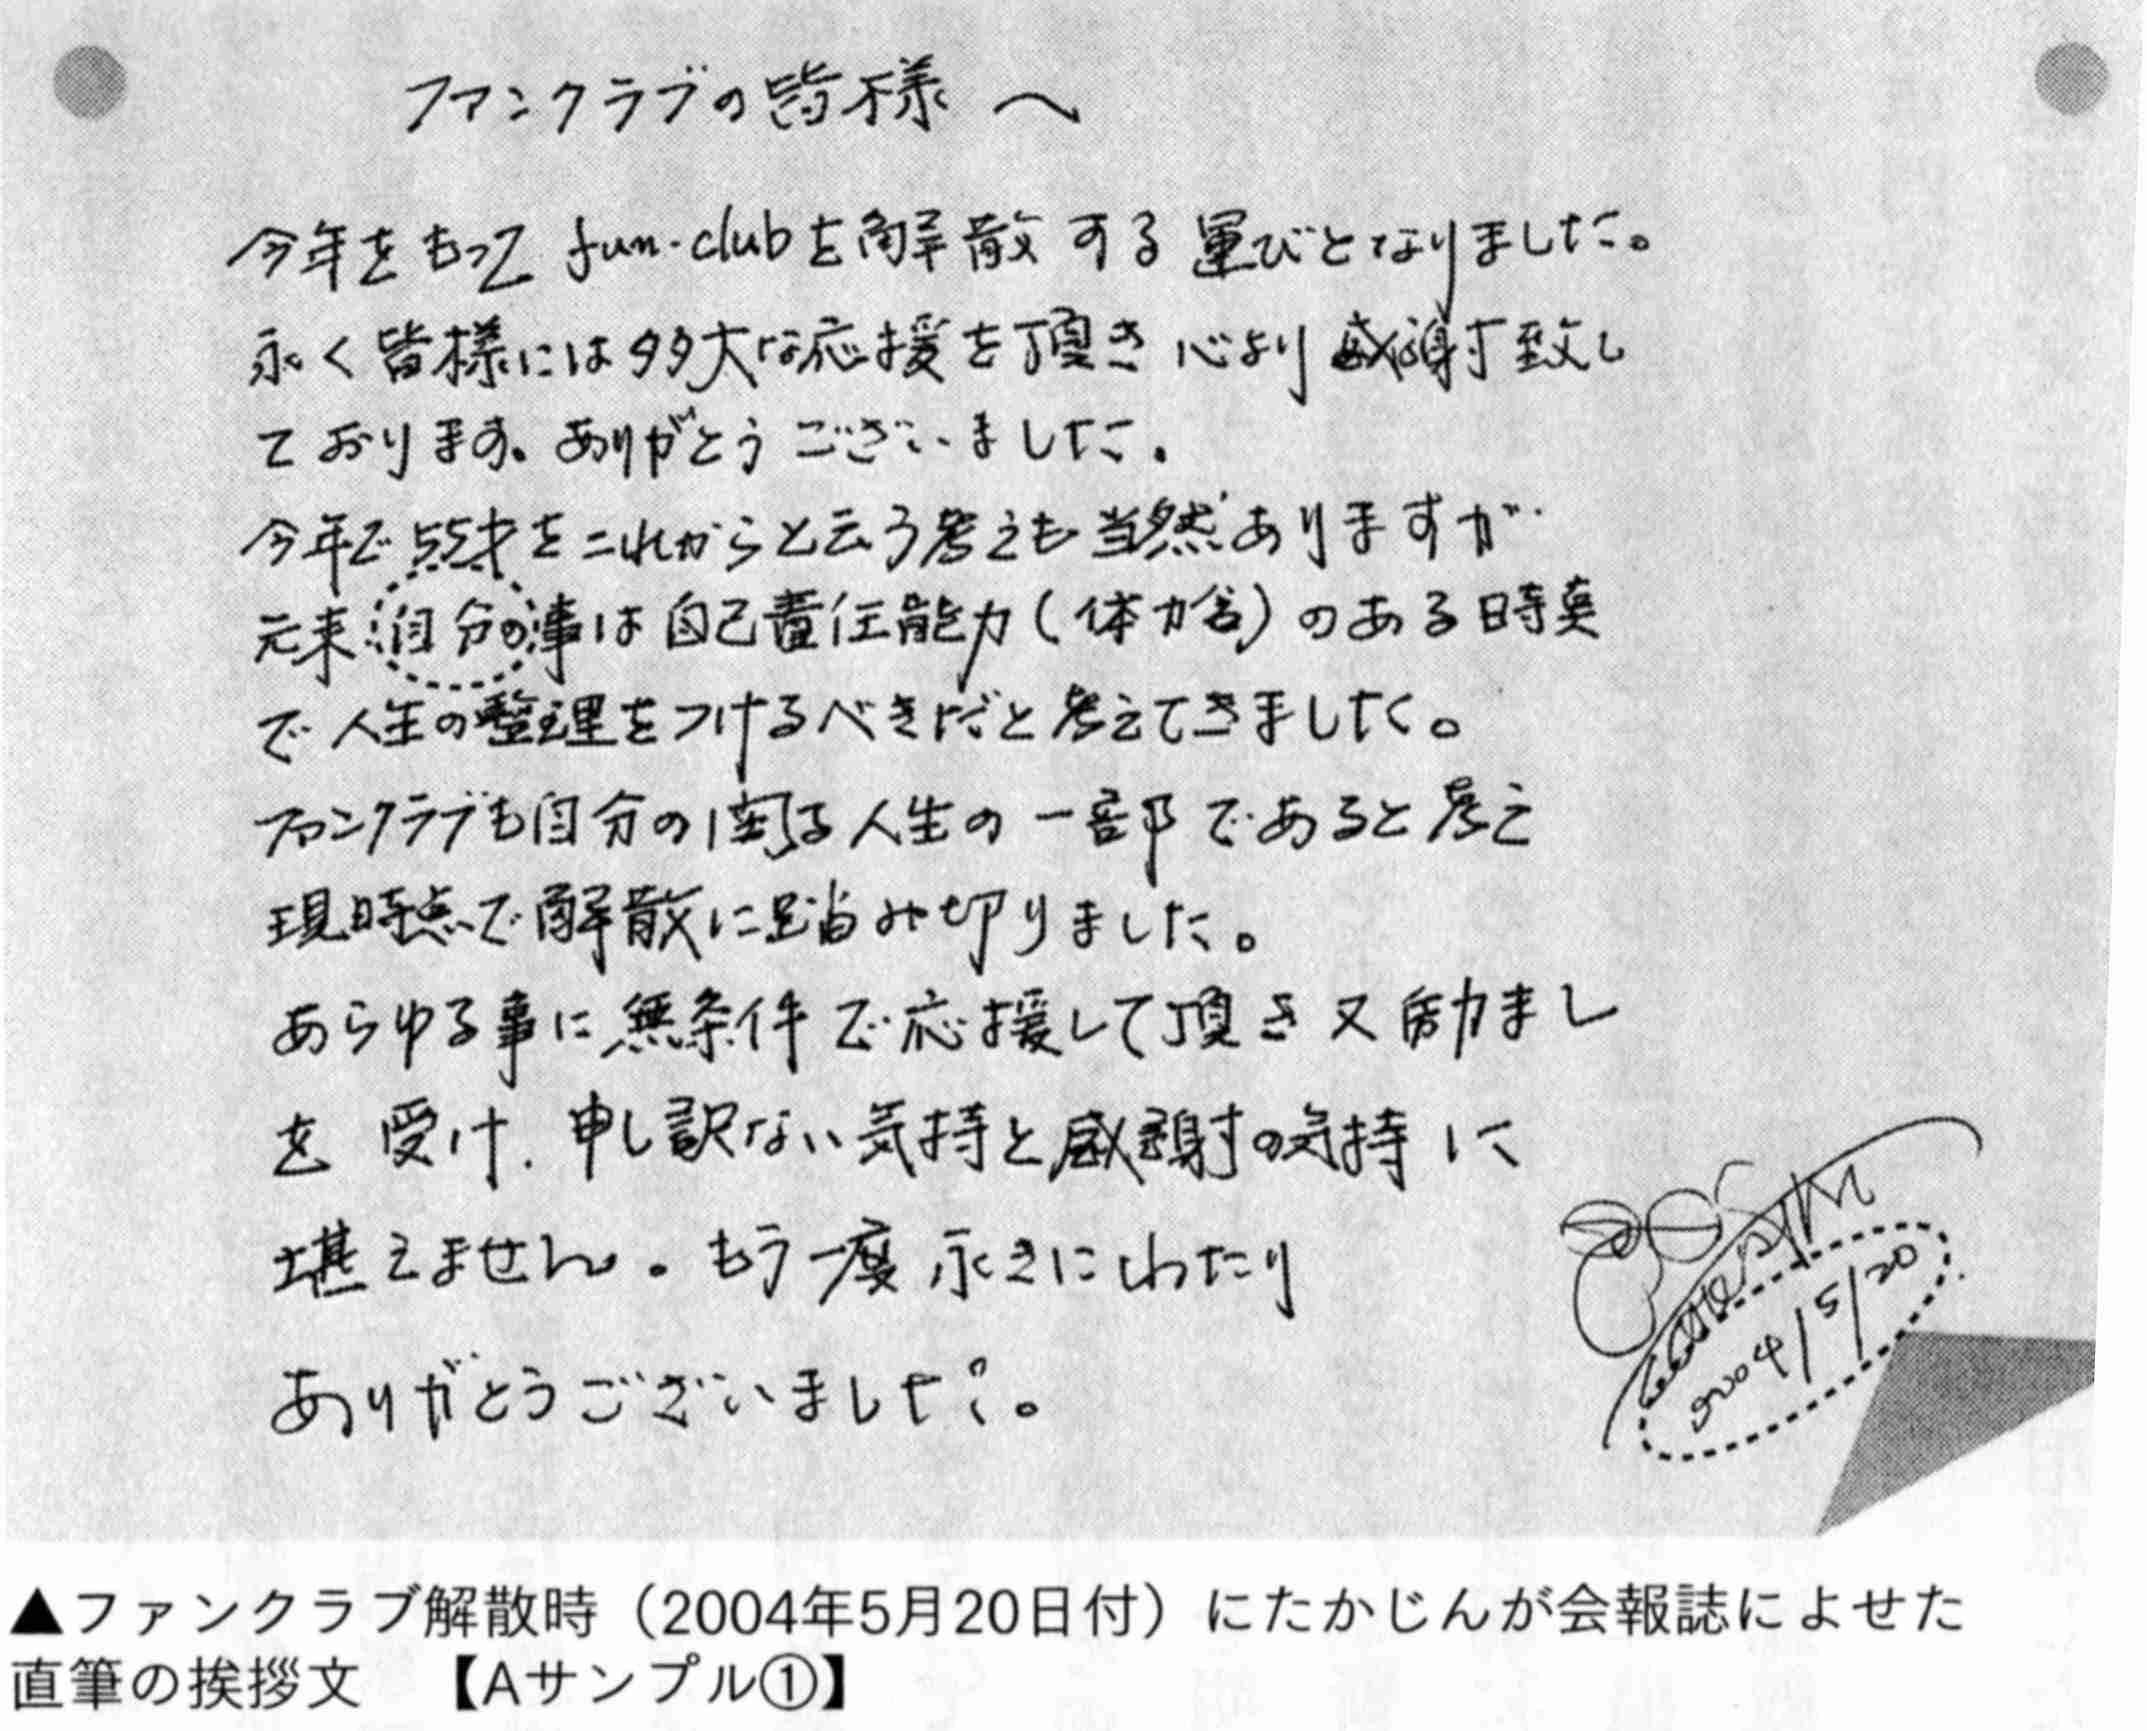 ファンクラブの皆様へ
今年をもって fun-clubを解散する運びとなりました。
永く皆様には多大な応援を頂き心より感謝致し
ております。ありがとうございました。
今年で55才をこれからと云う考えも当然ありますが
元来自分の事は自己責任能力(体力含)のある時点
で人生の整理をつけるべきだと考えてきました。
ファンクラブも自分の関る人生の一部であると考え
現時点で解散に踏み切りました。
あらゆる事に無条件で応援して頂き又励まし
を受け、申し訳ない気持と感謝の気持に
堪えません。もう一度永きにわたり
ありがとうございました。
2004/5/20
▲ファンクラブ解散時（2004年5月20日付）にたかじんが会報誌によせた
直筆の挨拶文　【Aサンプル①】